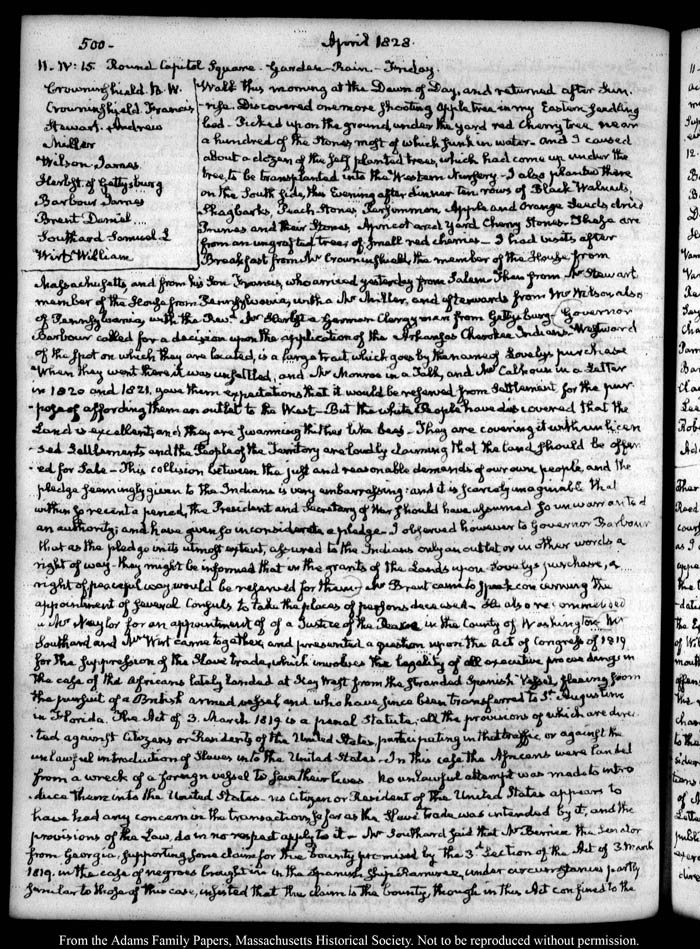 500-
April 1828.
11. IV: 15 Round Capitol Square. Garden. Rain. Friday
Crowninshield B. W.
Crowninshield Francis
Stewart. Andrew
Miller
Wilson. James
Herbst. of Gettysburg
Barbour James
Brent Daniel
Southard Samuel L
Wirt William
Walk this morning at the Dawn of Day, and returned after Sun-
rise. Discovered one more shooting Apple tree in my Eastern Seedling
bed. Picked up on the ground, under the yard red Cherry tree near
a hundred of the Stones, most of which sunk in water. and I caused
about a dozen of the self planted trees, which had come up under the
tree, to be transplanted into the Western Nursery. I also planted there
on the South side, this Evening after dinner ten rows of Black Walnuts,
Shagbarks, Peach Stones, Persimmon, Apple and Orange Seeds, dried
Prunes and their Stones, Apricot and yard Cherry Stones. These are
from an ungrafted tree, of small red cherries. I had visits after
Breakfast from Mr Crowninshield, the member of the House from
Massachusetts, and from his Son Francis, who arrived yesterday from Salem. Then from Mr Stewart
member of the House from Pennsylvania, with a Mr Miller, and afterwards from Mr Wilson, also
of Pennsylvania, with the Revd. Mr Herbst a German Clergyman from Gettysburg. Governor
Barbour called for a decision upon the application of the Arkansas Cherokee Indians. Westward
of the Spot on which they are located, is a large tract which goes by the name of Lovely's purchase
When they went there, it was unsettled, and Mr Monroe in a Talk, and Mr Calhoun in a Letter
in 1820 and 1821. gave them expectations that it would be reserved from settlement for the pur-
-pose of affording them an outlet to the West. But the white People have discovered that the
Land is excellent, and they are swarming thither like bees. They are covering it with unlicen
-sed Settlements and the People of the Territory are loudly claiming that the land should be offer
-ed for Sale. This collision between the just and reasonable demands of our own people, and the
pledge seemingly given to the Indians is very embarrassing: and it is scarcely imaginable that
within so recent a period, the President and Secretary of War should have assumed so unwarranted
an authority; and have given so inconsiderate a pledge. I observed however to Governor Barbour
that as the pledge in its utmost extent, assured to the Indians only an outlet or in other words a
right of way. they might be informed that in the grants of the Lands upon Lovely's purchase, a
right of peaceful way would be reserved for them. Mr Brent came to speak concerning the
appointment of several Consuls to take the places of persons deceased. He also recommended
a Mr Naylor for an appointment of of a Justice of the Peace in the County of Washington. Mr
Southard and Mr Wirt came together, and presented a question upon the Act of Congress of 1819
for the suppression of the Slave trade, which involves the legality of all executive proceedings in
the case of the Africans lately landed at Key West from the stranded Spanish Vessel, fleeing from
the pursuit of a British armed vessel and who have since been transferred to St. Augustine
in Florida. The Act of 3. March 1819 is a penal Statute; all the provisions of which are direc-
-ted against Citizens or Residents of the United States, participating in that traffic, or against the
unlawful introduction of Slaves into the United States. In this case the Africans were landed
from a wreck of a foreign vessel to save their lives. No unlawful attempt was made to intro
-duce them into the United States. no Citizen or Resident of the United States appears to
have had any concern in the transaction, so far as the Slave trade was intended by it, and the
provisions of the Law, do in no respect apply to it. Mr Southard said that Mr Berrien the Senator
from Georgia, supporting some claim for the bounty promised by the 3d Section of the Act of 3. March
1819. in the case of negroes brought in in the Spanish Ship Ramirez, under circumstances partly
similar to those of this case, insisted that the claim to the bounty, though in the Act confined to the
From the Adams Family Papers, Massachusetts Historical Society. Not to be reproduced without permission.